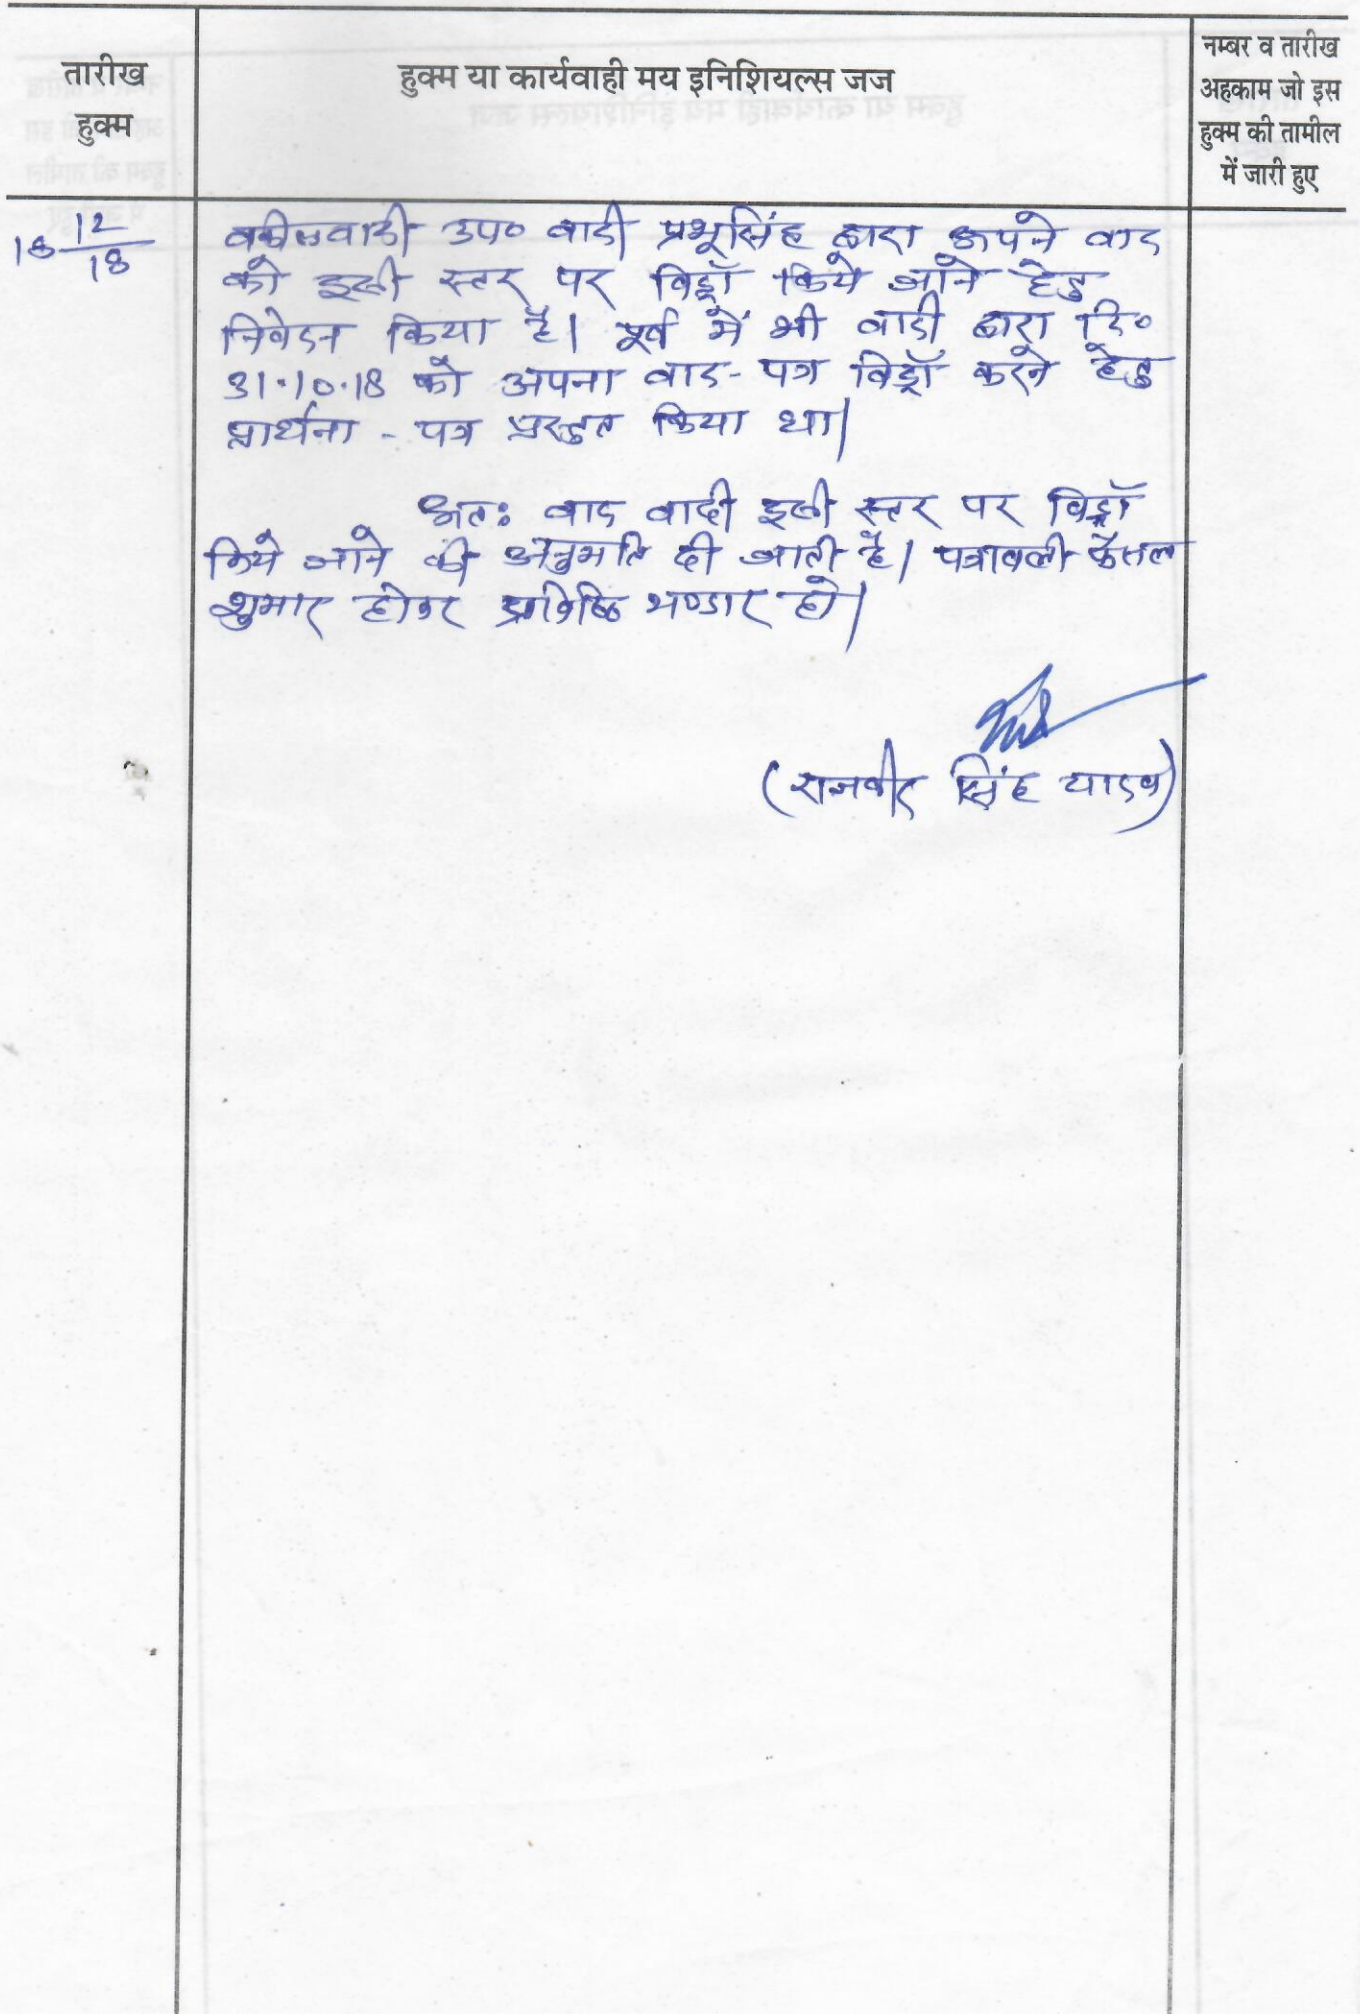 तारीख
हुक्म
हुक्म या कार्यवाही मय इनिशियल्स जज
नम्बर व तारीख
अहकाम जो इस
हुक्म की तामील
में जारी हुए
18 12/18
वकीलवादी उप० वादी प्रभूसिंह द्वारा अपने वाद
को इसी स्तर पर विड्रॉ किये जाने हेतु
निवेदन किया है। पूर्व में भी वादी द्वारा दि०
31.10.18 को अपना वाद-पत्र विड्रॉ करने हेतु
प्रार्थना-पत्र प्रस्तुत किया था।
अतः वाद वादी इसी स्तर पर विड्रॉ
किये जाने की अनुमति दी जाती है। पत्रावली फैसल
शुमार होकर भण्डार हो।
(राजवीर सिंह यादव)